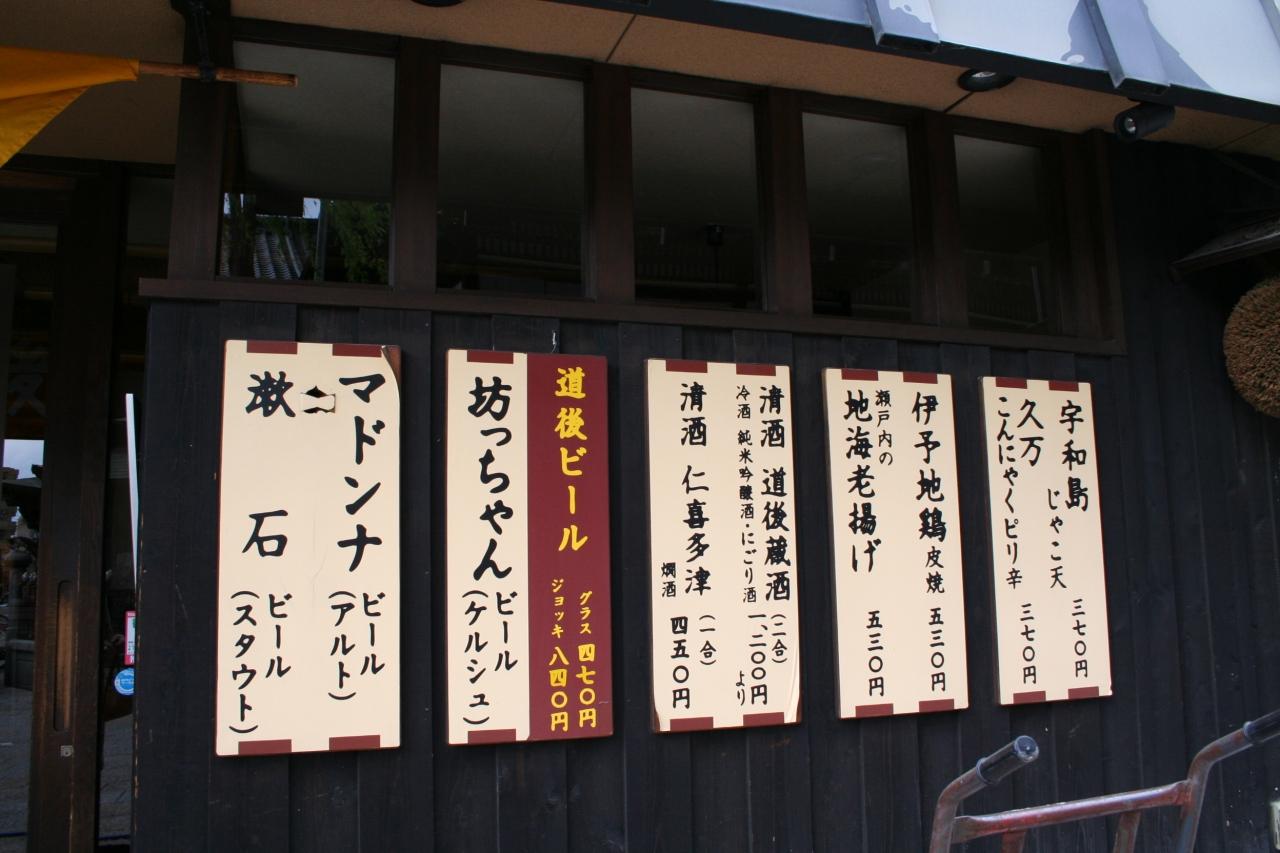 宇和島 じゃこ天 三七〇円
久万 こんにゃくピリ辛 三七〇円
伊予地鶏 皮焼 五三〇円
瀬戸内の
地海老揚げ 五三〇円
清酒 道後蔵酒 (二合) 一、二〇〇円より
冷酒 純米吟醸酒・にごり酒
清酒 仁喜多津 (一合) 四五〇円
燗酒
道後ビール グラス 四七〇円
ジョッキ 八四〇円
坊っちゃん ビール (ケルシュ)
マドンナ ビール (アルト)
漱石 ビール (スタウト)